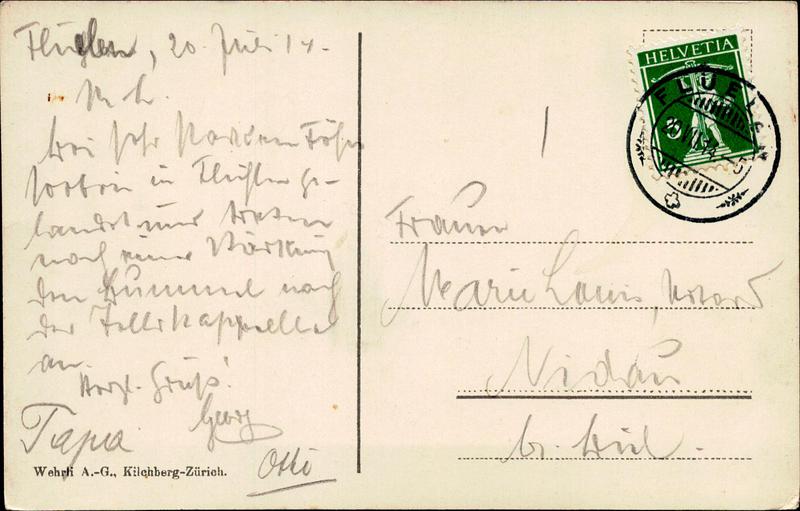 Flüelen, 20. Juli 14.
M. L.
Bei sehr starkem Föhn
soeben in Flüelen ge-
landet und treten
nach einer Stärkung
den Bummel nach
der Tellskappelle
an.
Herzl. Gruss!
Georg
Papa
Otti
Wehrli A.-G., Kilchberg-Zürich.
HELVETIA
5
FLÜELEN
20.VII.14.-5
Frauen
Marie Louis, Notard
Nidau
b. Biel.